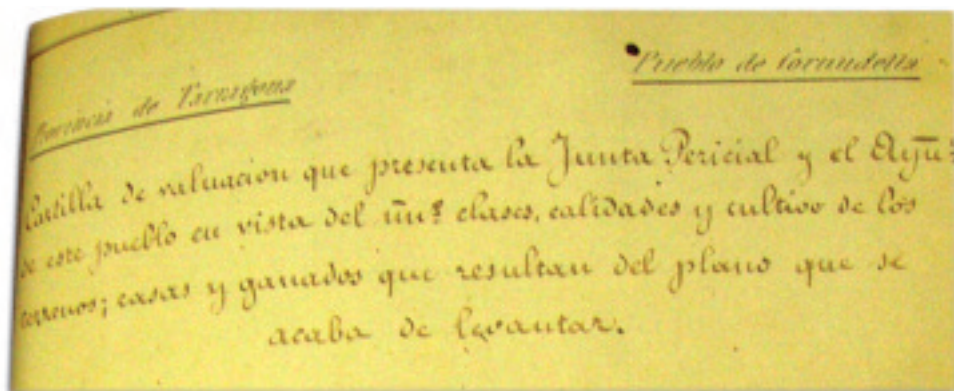 Provincia de Tarragona
Pueblo de Cornudella
Cartilla de valuacion que presenta la Junta Pericial y el Ayūº
de este pueblo en vista del nūº clases, calidades y cultivo de los
terrenos; casas y ganados que resultan del plano que se
acaba de levantar.